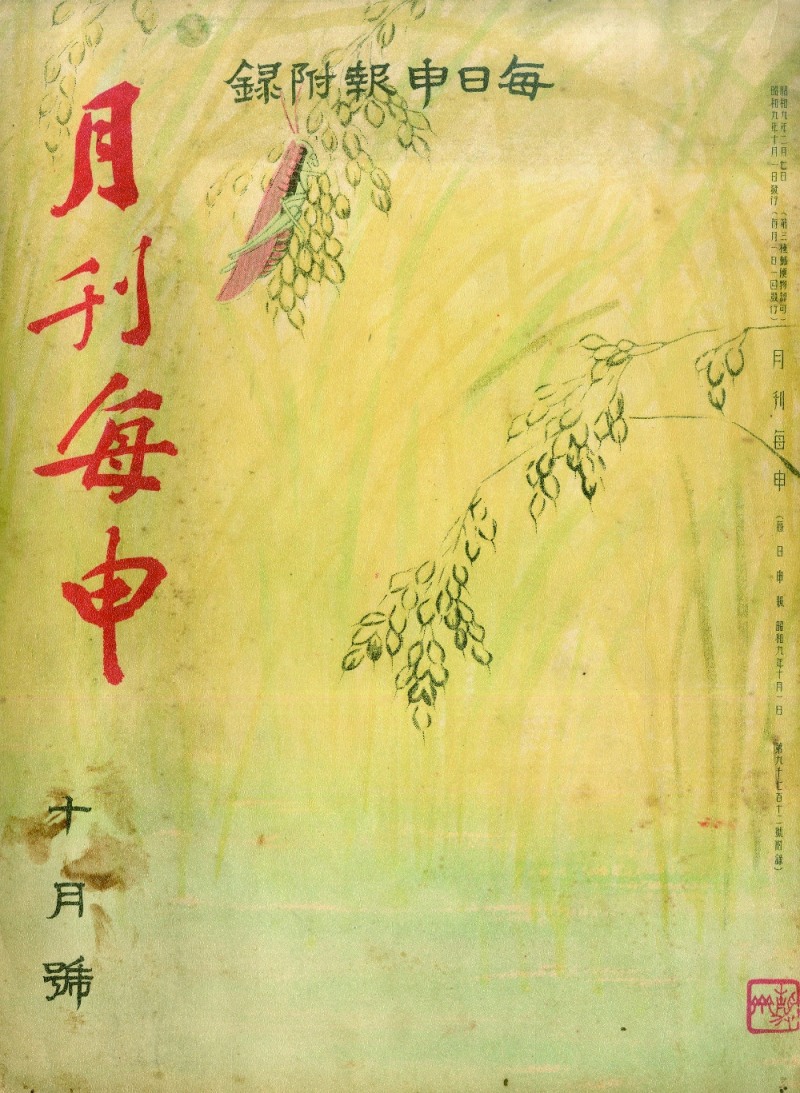 每日申報附錄
昭和九年二月七日(第三種郵便物認可)
昭和九年十月一日發行(每月一日一回發行)
月刊每申(每日申報 昭和九年十月一日 第九千七百十二號附錄)
月刊每申
十月號